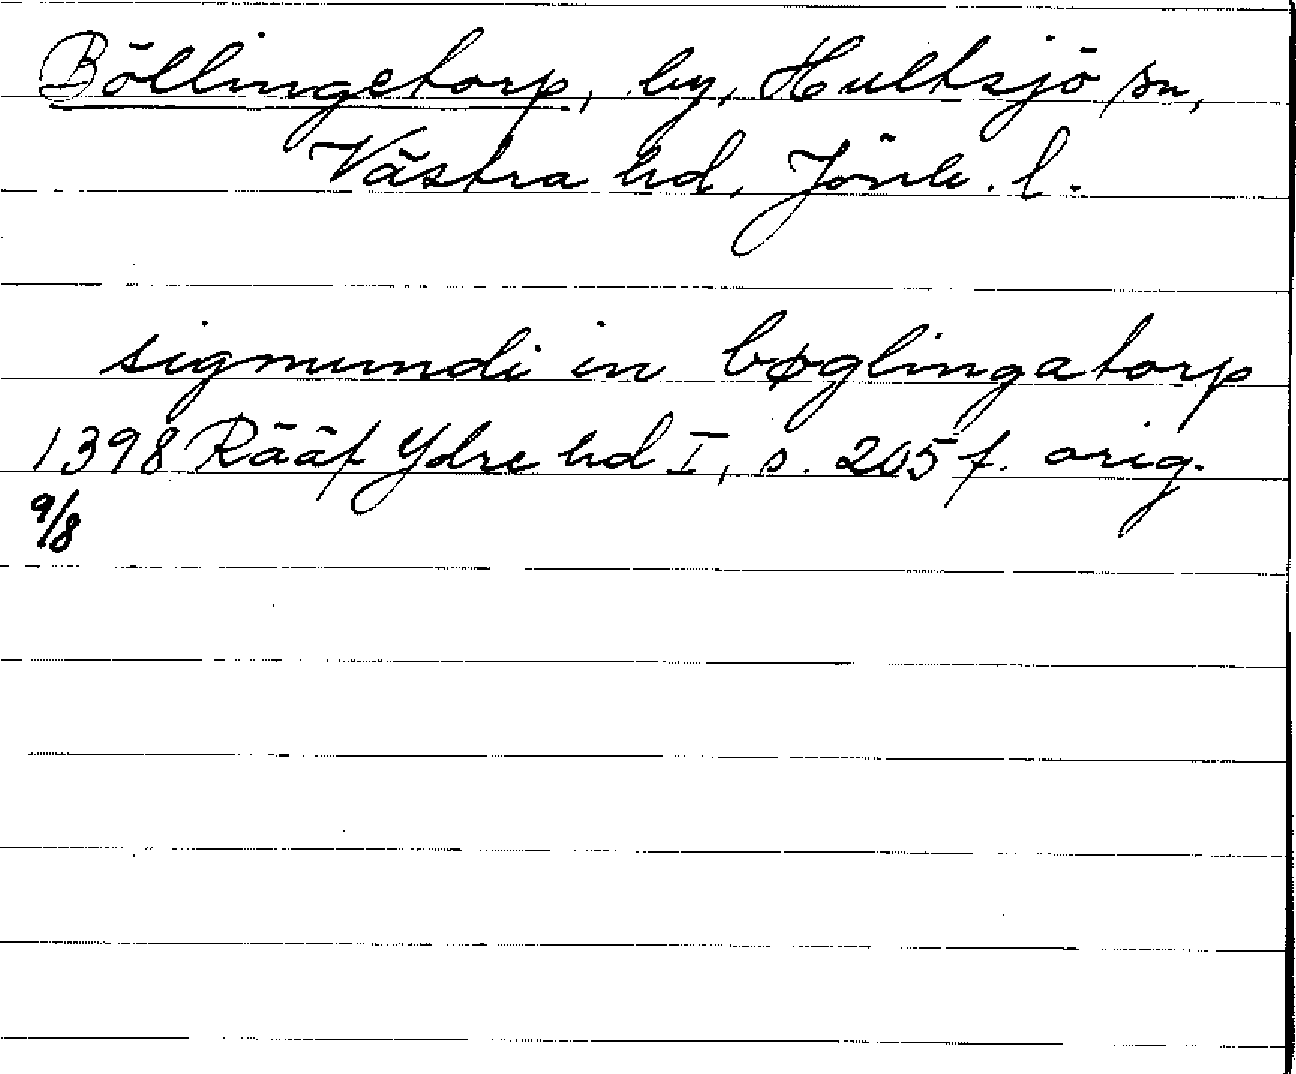 Böllingetorp, by, Hultsjö sn,
Västra hd, Jönk. l.
sigmundi in bøglingatorp
1398 Rääf Ydre hd I, s. 205 f. orig.
9/8